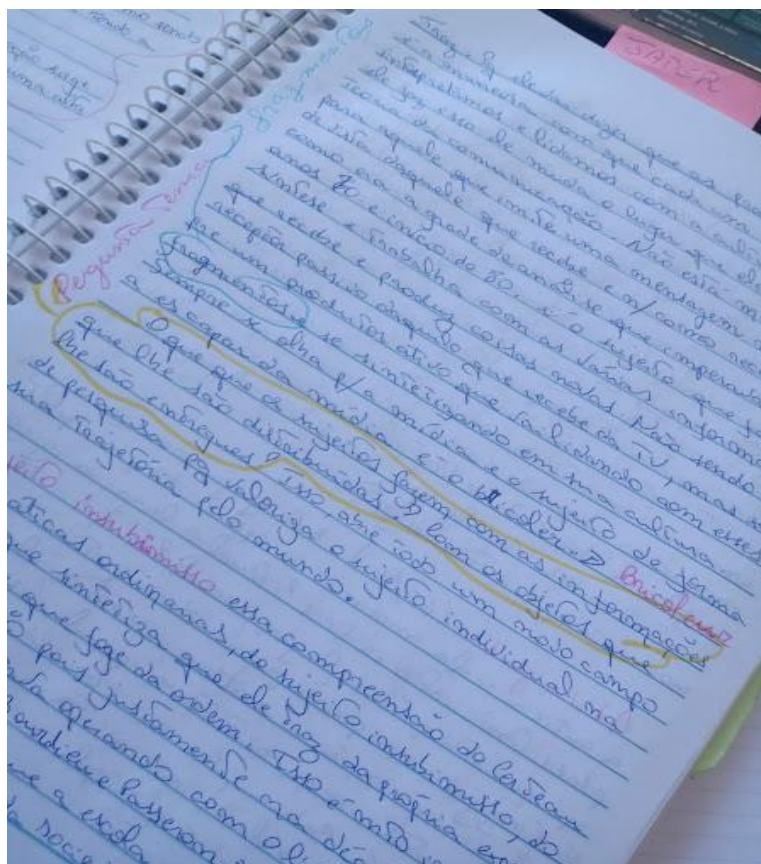 mo sendo
rendo
ção surge
uma atri
SABER
fragmentos
Pergunta Tema
Traz. Pq ele vai dizer que as
é a maneira com que cada um
interpretamos e lidamos com a cultu
ele faz isso de muda o lugar que ele
teoria da comunicação. Não está
para aquele que emite uma mensagem
de vista daquele que recebe e n/ como
como era a grade de análise que imperava
anos 70 e início de 80. é o sujeito que
síntese e trabalha com as várias informa
que recebe e produz coisas novas. Não sendo
receptor passivo daquilo que recebe da TV, mas
um produtor ativo que lidando com esses
fragmentos e sintetizando em sua cultura.
Sempre se olha p/ a mídia e o sujeito de forma
a escapar da mídia é o Bricoleur
O que que os sujeitos fazem com as informações
que lhe são distribuídas? Com os objetos que
lhe são entregues? Isso, abre todo um novo campo
de pesquisa pq valoriza o sujeito individual na
sua trajetória pelo mundo.
jeito insubmisso essa compreensão do Certeau
áticas ordinárias, do sujeito insubmisso, do
que sintetiza que ele traz da própria
que foge da ordem. Isso é mto
pois justamente na dé
operando com o
Bourdieu e Passeron
que a escola
da socie